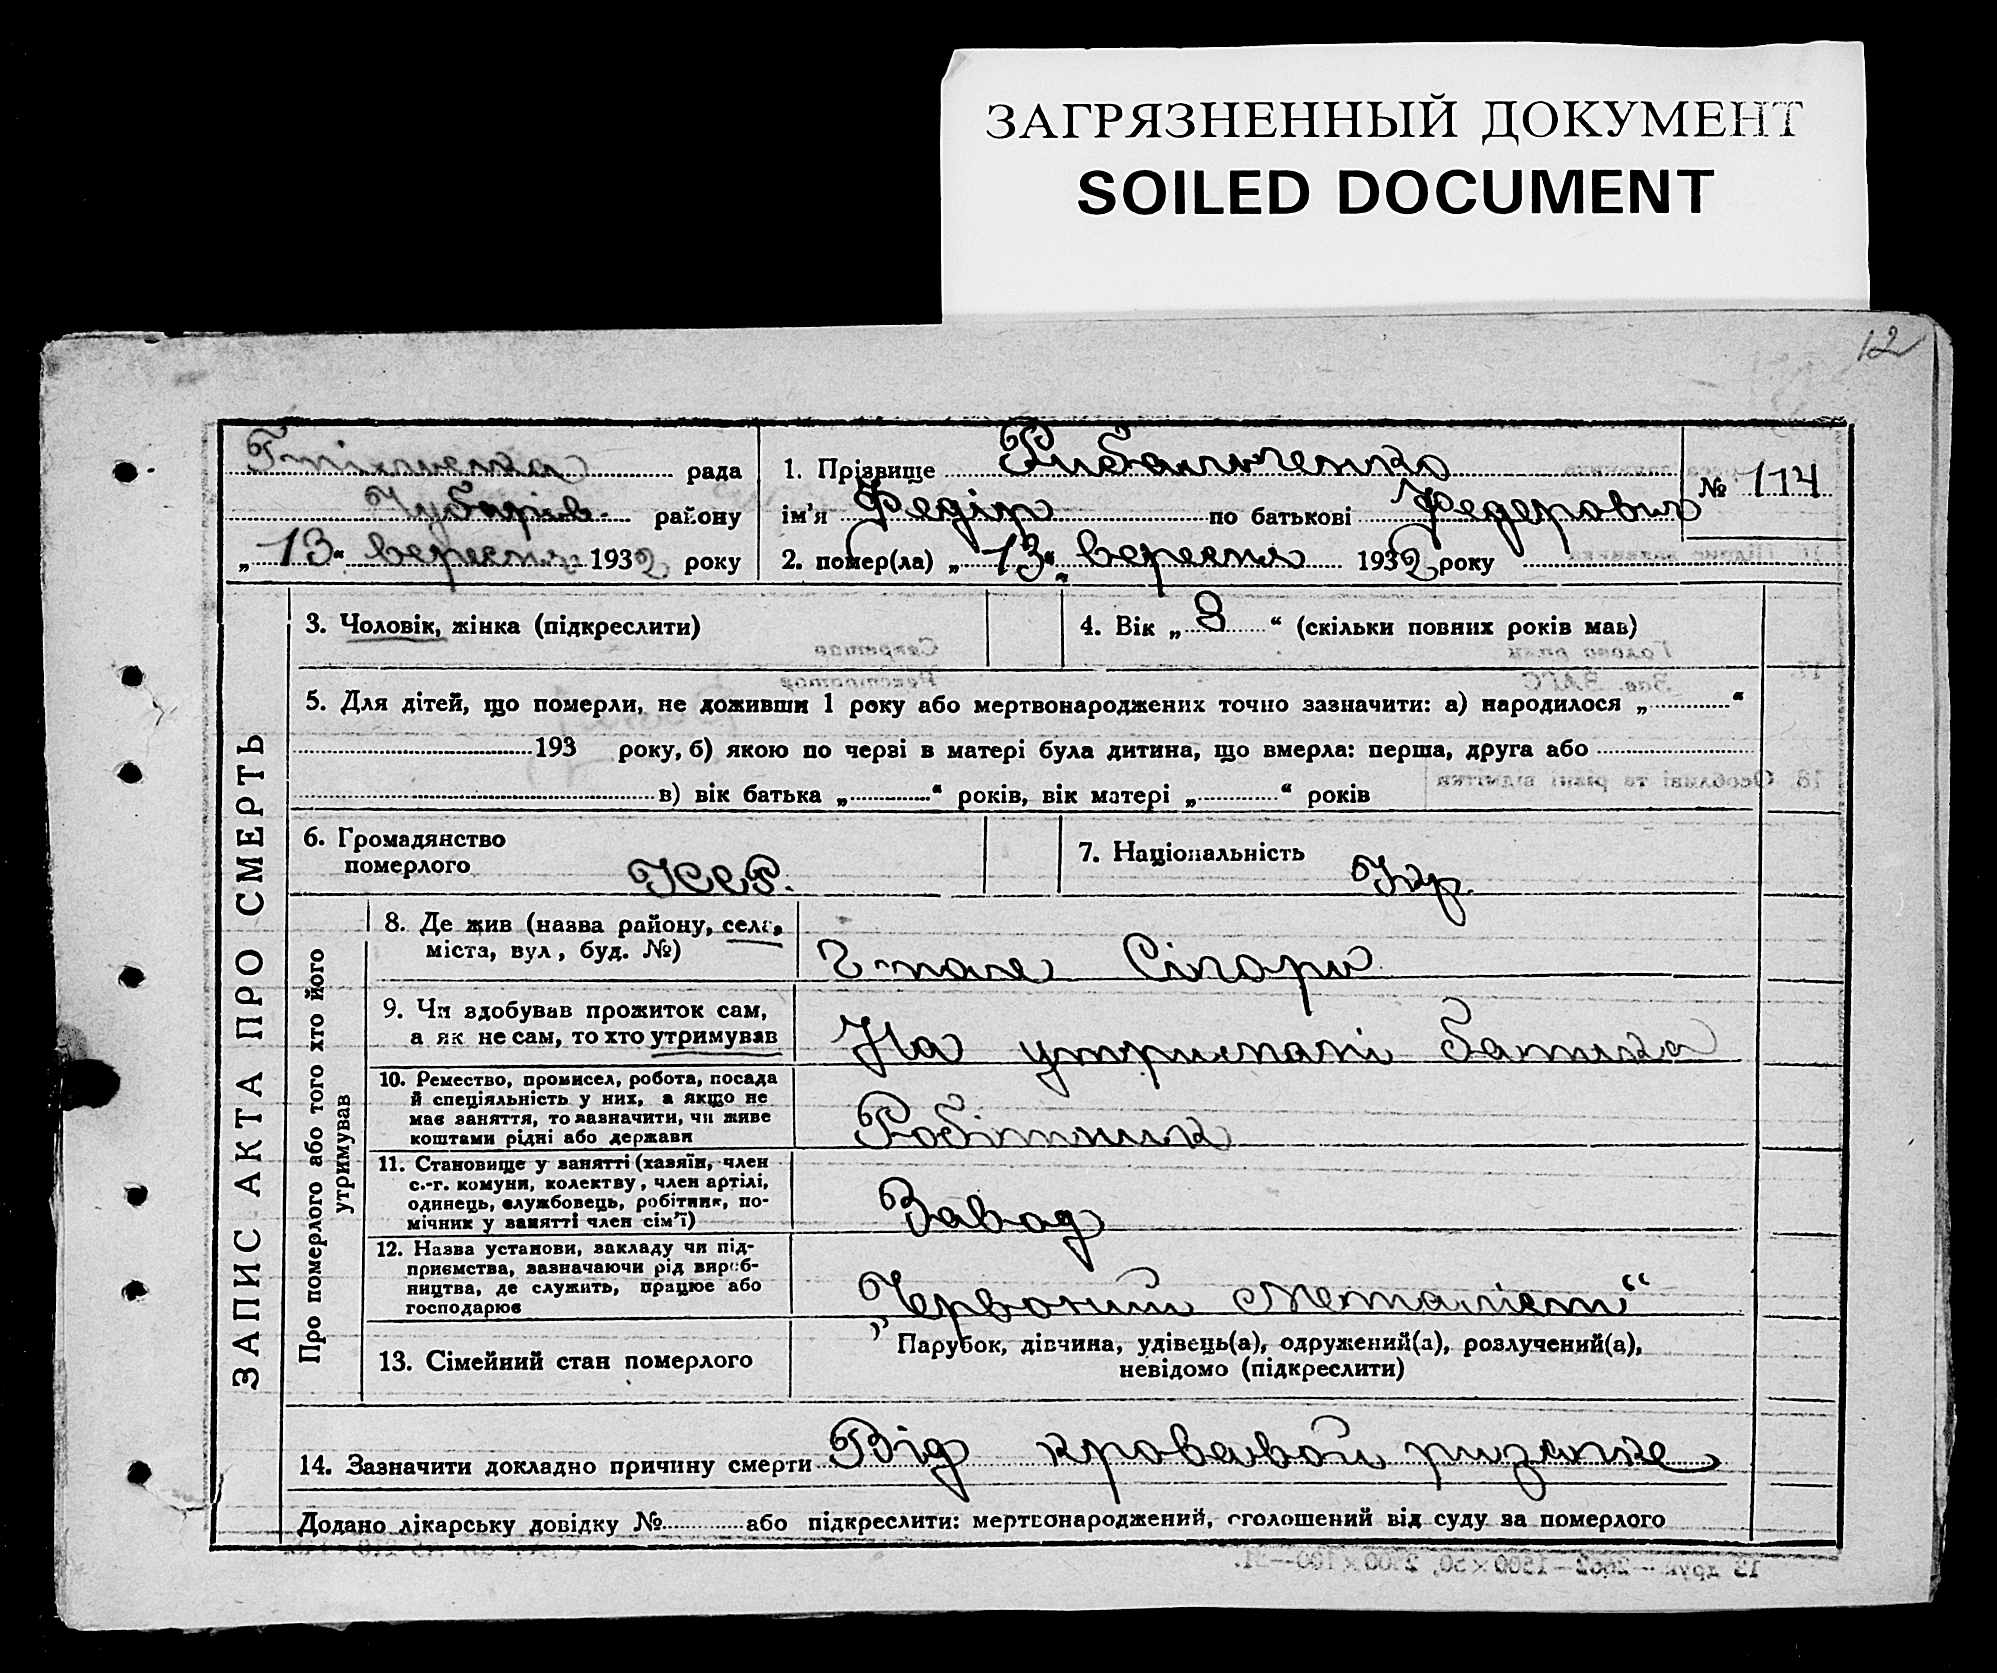 ЗАГРЯЗНЕННЫЙ ДОКУМЕНТ
SOILED DOCUMENT
12
рада
району
„13“ вересня 1932 року
1. Прізвище
ім'я Федір по батькові Федерович
№ 114
2. помер(ла) „13“ вересня 1932 року
ЗАПИС АКТА ПРО СМЕРТЬ
3. Чоловік, жінка (підкреслити)
4. Вік „8“ (скільки повних років мав)
5. Для дітей, що померли, не доживши 1 року або мертвонароджених точно зазначити: а) народилося „ “
193 року, б) якою по черзі в матері була дитина, що вмерла: перша, друга або
в) вік батька „ “ років, вік матері „ “ років
6. Громадянство
померлого УССР.
7. Національність Укр.
Про померлого або того хто його
утримував
8. Де жив (назва району, села,
міста, вул, буд. №)
9. Чи здобував прожиток сам,
а як не сам, то хто утримував
На утримані батька
10. Ремество, промисел, робота, посада
й спеціяльність у них, а якщо не
має заняття, то зазначити, чи живе
коштами рідні або держави
Робітник
11. Становище у занятті (хазяїн, член
с.-г. комуни, колектву, член артілі,
одинець, службовець, робітник, по-
мічник у занятті член сім'ї)
Завод
12. Назва установи, закладу чи під-
приємства, зазначаючи рід вироб-
ництва, де служить, працює або
господарює
„Червоний Металіст“
13. Сімейний стан померлого
Парубок, дівчина, удівець(а), одружений(а), розлучений(а),
невідомо (підкреслити)
14. Зазначити докладно причину смерти Від кровавой
Додано лікарську довідку № або підкреслити: мертвонароджений, оголошений від суду за померлого